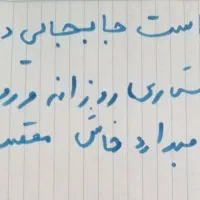 است جابجایی د
ساری روزانه ورو
میدارد خاش مقصد